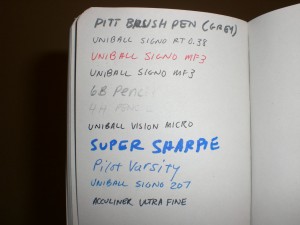 PITT BRUSH PEN (GREY)
UNIBALL SIGNO RT 0.38
UNIBALL SIGNO MF3
UNIBALL SIGNO MF3
6B Pencil
4H PENCIL
UNIBALL VISION MICRO
SUPER SHARPIE
Pilot Varsity
UNIBALL SIGNO 207
ACCULINER ULTRA FINE